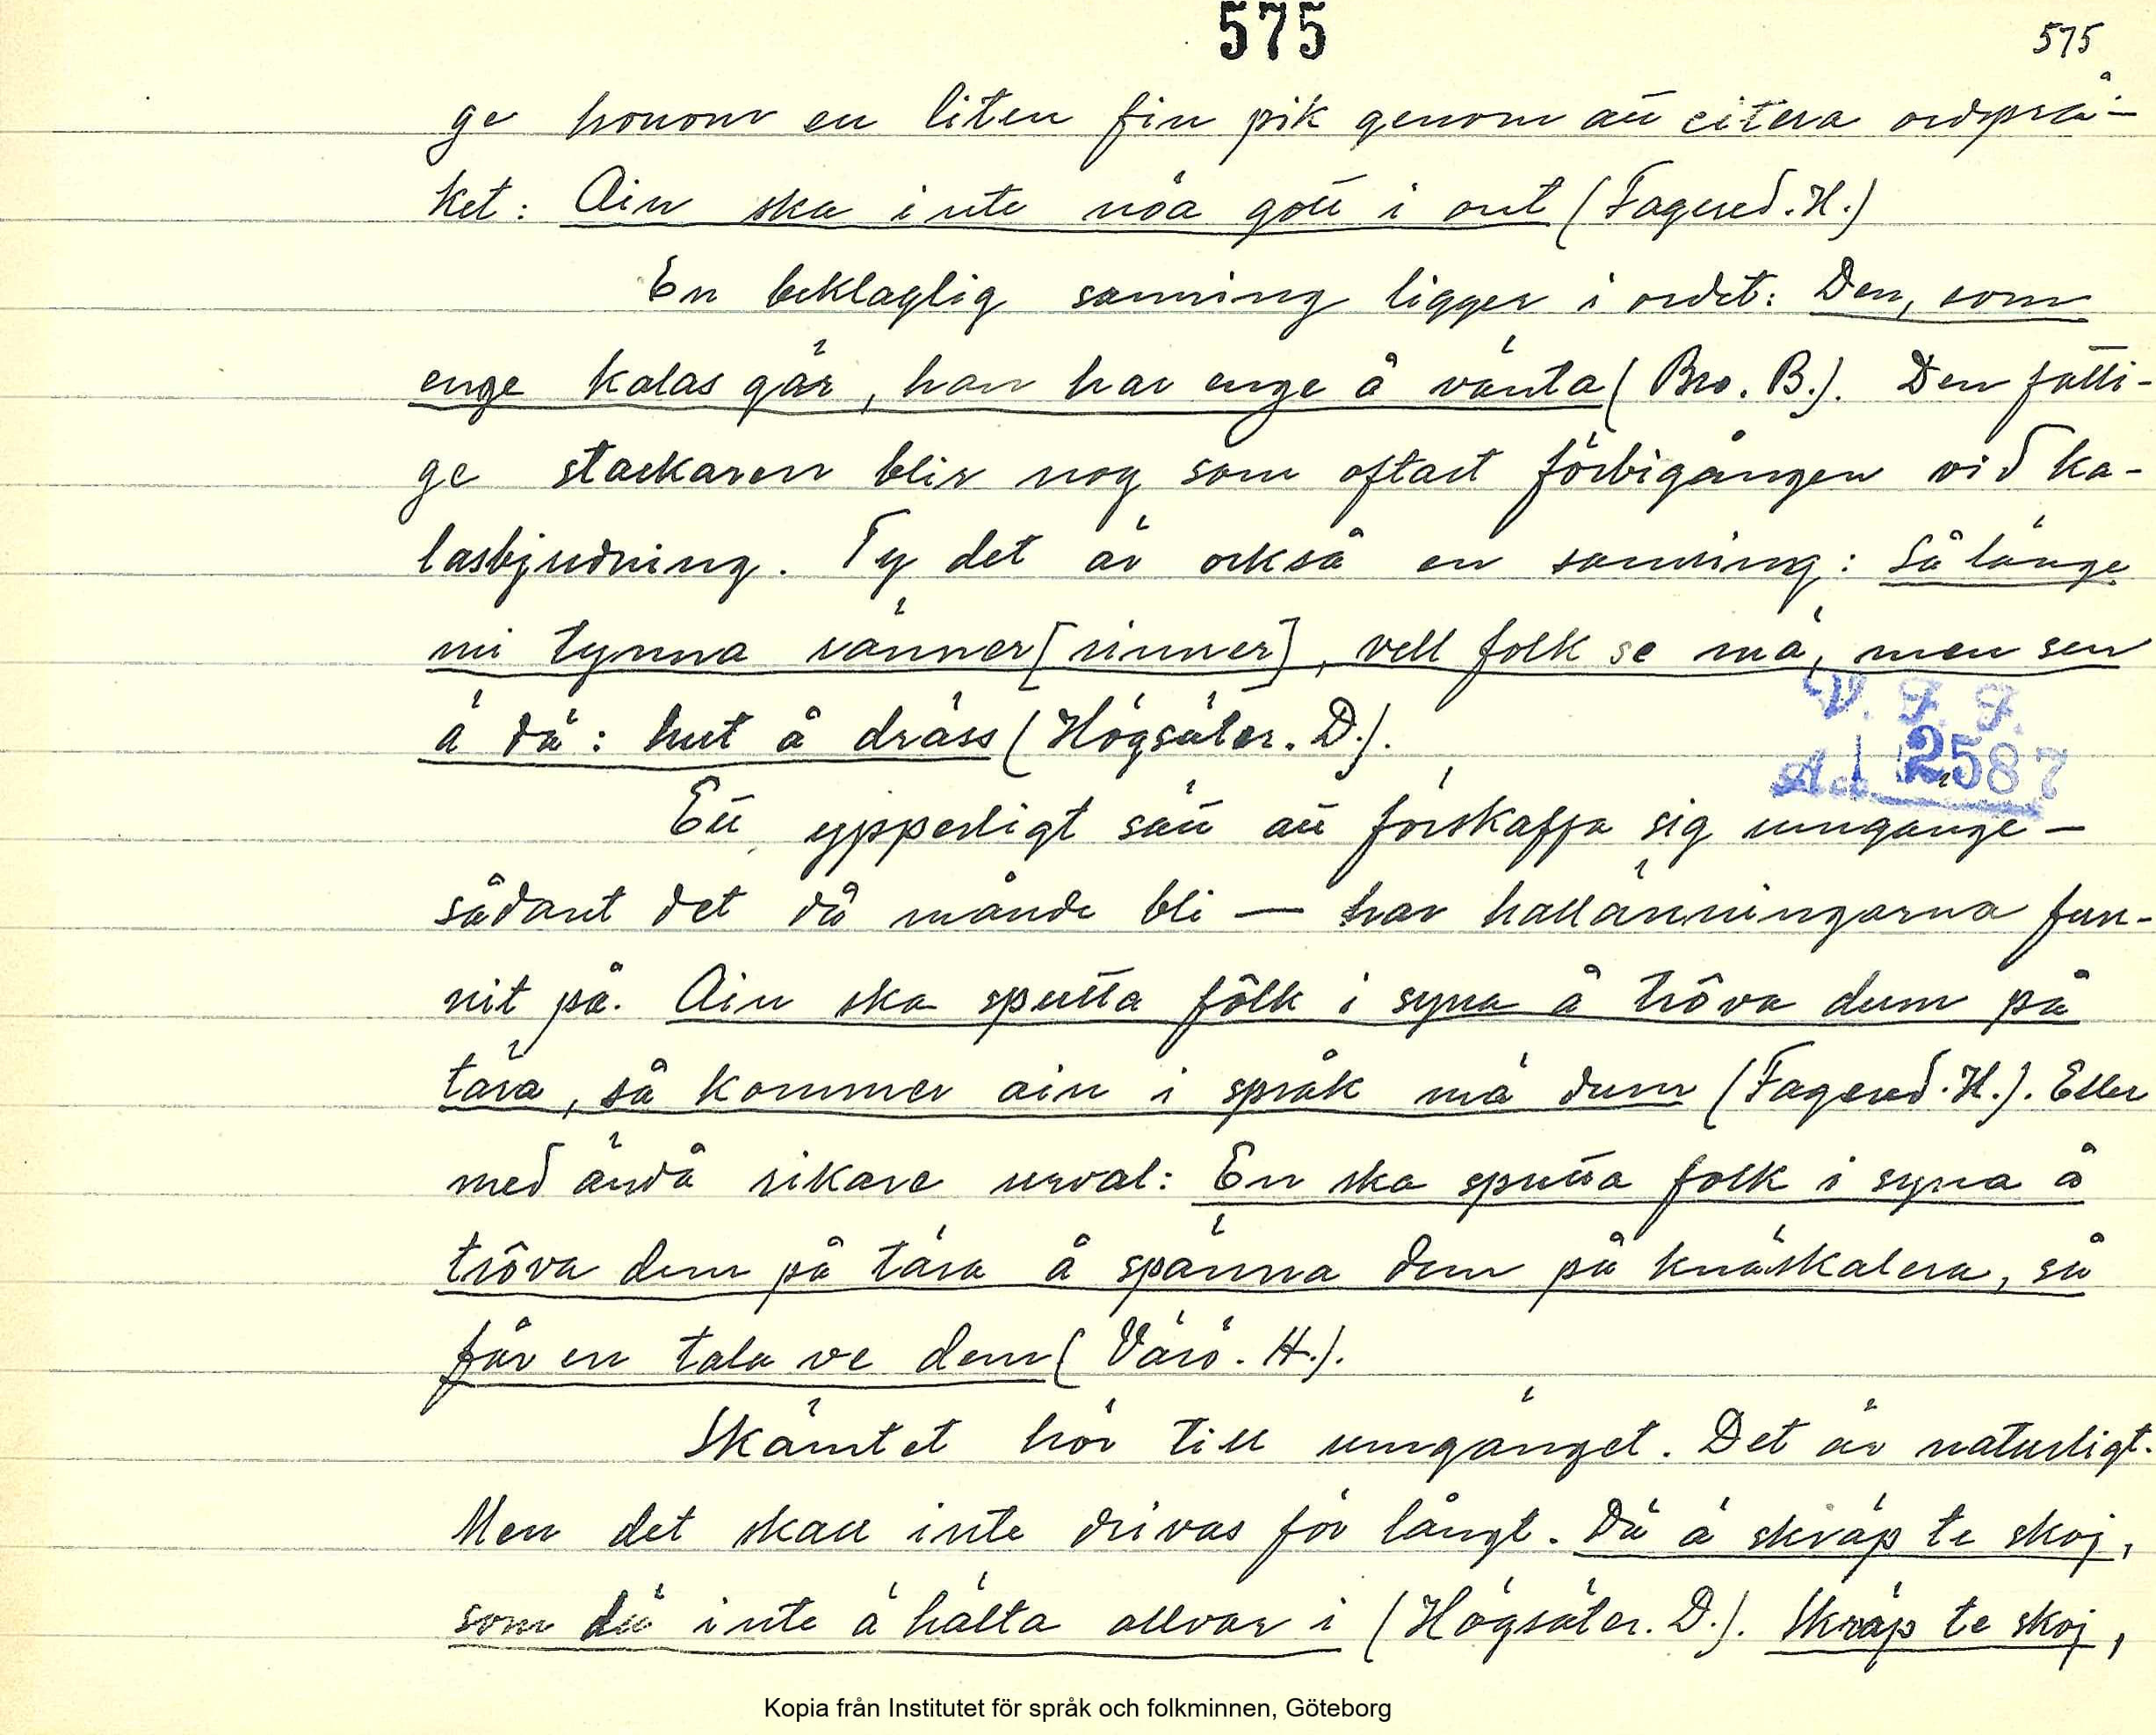 575
575
ge honom en liten fin pik genom att citera ordsprå-
ket: Ain ska inte nöa gott i ont (Fagered. H.)
En beklaglig sanning ligger i ordet: Den, som
enge kalas gär, han har enge å vänta (Bro. B.). Den fatti-
ge stackaren blir nog som oftast förbigången vid ka-
lasbjudning. Ty det är också en sanning: Så länge
mi tynna ränner [rinner], vell folk se mä, men sen
ä dä: hut å dräss (Högsäter. D.).
V. F. F.
Acc. 2587
Ett ypperligt sätt att förskaffa sig umgänge -
sådant det då månde bli — har hallänningarna fun-
nit på. Ain ska sputta fôlk i syna å trôva dum på
tära, så kommer ain i språk mä dum (Fagered. H.). Eller
med ändå rikare urval: En ska sputta folk i syna å
trôva dem på tära å spänna dem på knäskalera, så
får en tala ve dem (Värö. H.).
Skämtet hör till umgänget. Det är naturligt.
Men det skall inte drivas för långt. Dä ä skräp te skoj,
som dä inte ä hälta allvar i (Högsäter. D.). Skräp te skoj,
Kopia från Institutet för språk och folkminnen, Göteborg